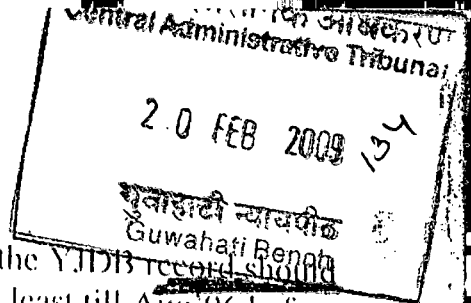 Central Administrative Tribunal
20 FEB 2009
134
गुवाहाटी न्यायपीठ
Guwahati Bench
the YJDB record should
least till